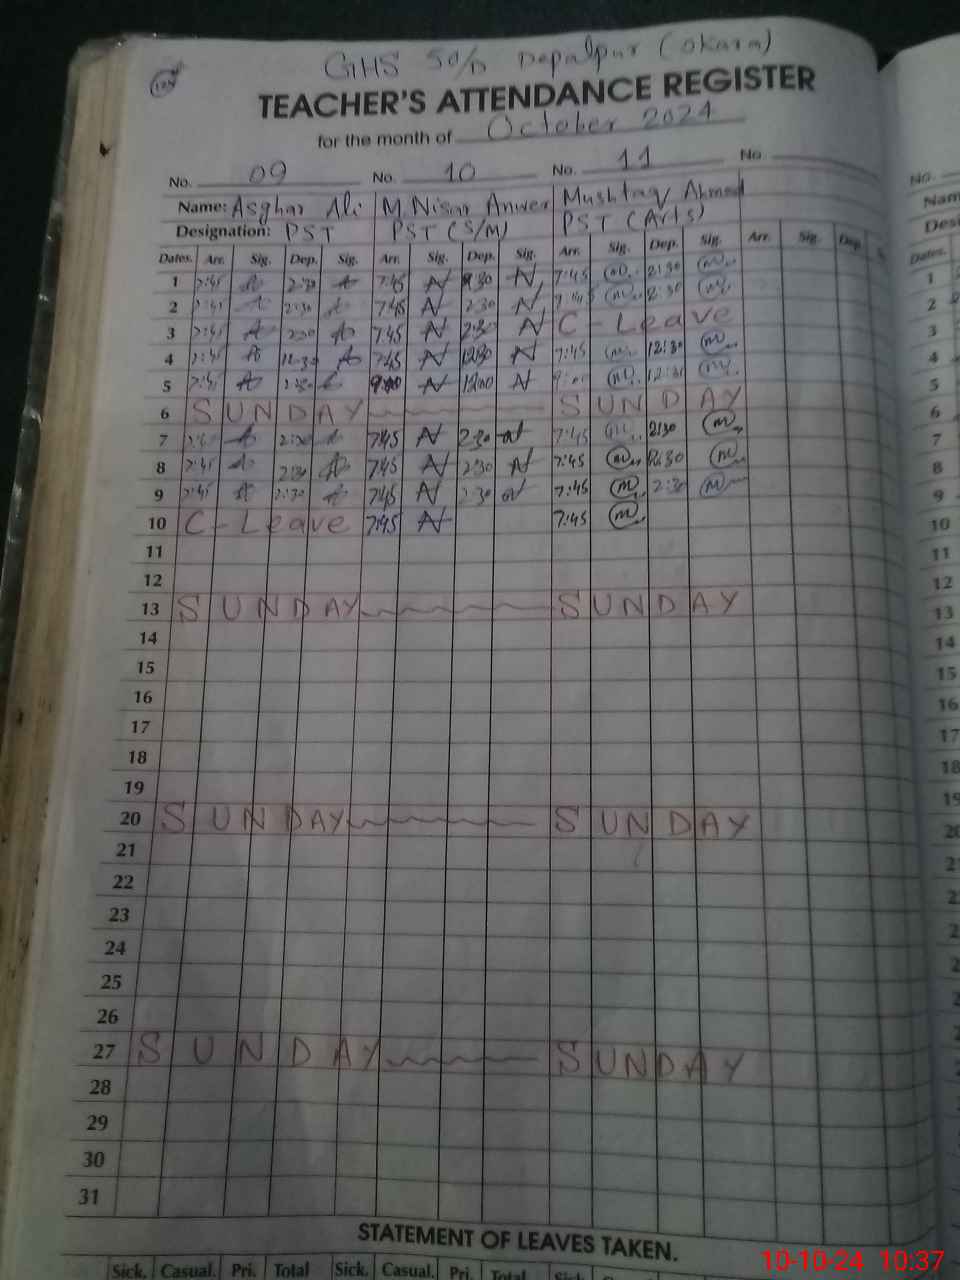 GHS 50/D Depalpur (Okara)
TEACHER'S ATTENDANCE REGISTER
for the month of October 2024
No. 09 No. 10 No. 11 No
Name: Asghar Ali M. Nisar Anwer Mushtaq Ahmed
Designation: PST PST (S/M) PST (Arts)
Dates. Arr. Sig. Dep. Sig. Arr. Sig. Dep. Sig. Arr. Sig. Dep. Sig. Arr. Sig. Dep
1 7:45 2:30 7:45 2:30 7:45 2:30
2 7:45 2:30 7:45 2:30 7:45 2:30
3 7:45 2:30 7:45 2:30 C - Leave
4 7:45 12:30 7:45 12:30 7:45 12:30
5 7:45 2:30 9:00 9:00 12:30
6 SUNDAY SUNDAY
7 7:45 2:30 7:45 2:30 7:45 2:30
8 7:45 2:30 7:45 2:30 7:45 2:30
9 7:45 2:30 7:45 2:30 7:45 2:30
10 C - Leave 7:45 7:45
11
12
13 SUNDAY SUNDAY
14
15
16
17
18
19
20 SUNDAY SUNDAY
21
22
23
24
25
26
27 SUNDAY SUNDAY
28
29
30
31
STATEMENT OF LEAVES TAKEN.
Sick. Casual. Pri. Total Sick. Casual. Pri. Total Sick.
No.
Nam
Desi
Dates.
1
2
3
4
5
6
7
8
9
10
11
12
13
14
15
16
17
18
20
10-10-24 10:37